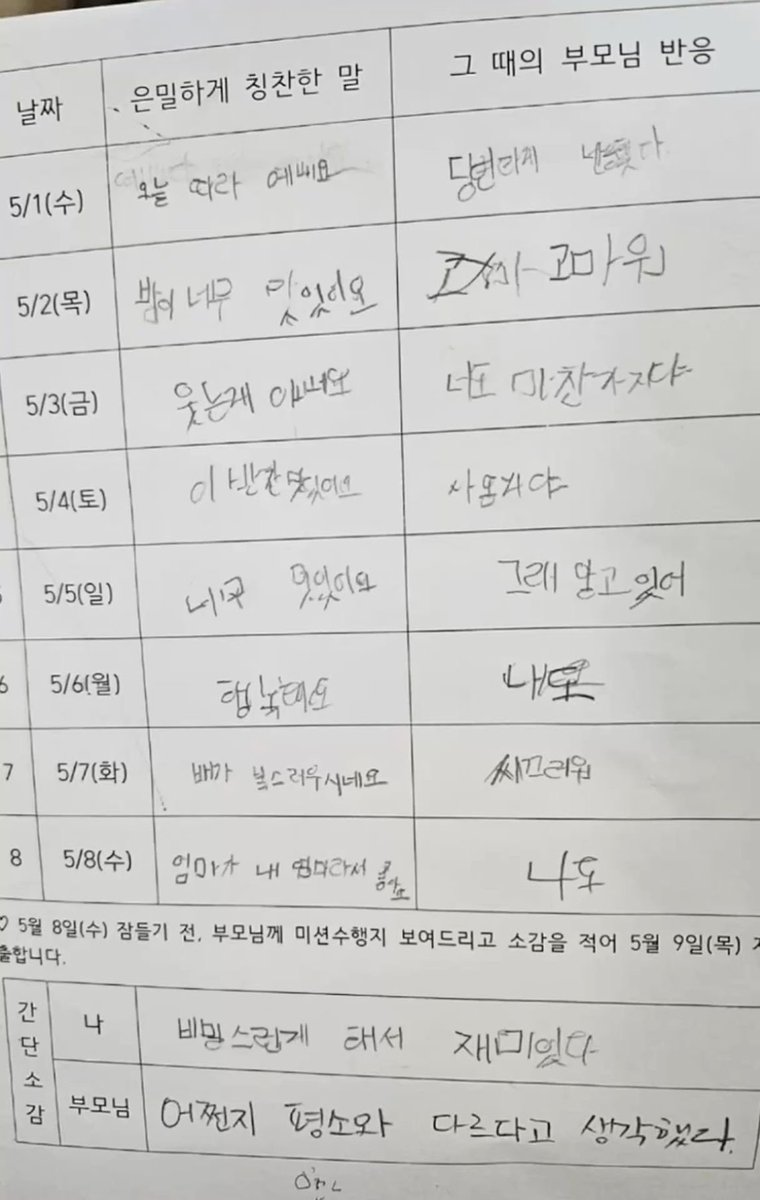 날짜 은밀하게 칭찬한 말 그 때의 부모님 반응
5/1(수) 오늘 따라 예뻐요
5/2(목) 밥이 너무 맛있어요 고마워
5/3(금) 웃는게 너도 마찬가지야
5/4(토) 이 반찬 맛있어요
5/5(일) 그래 알고 있어
6 5/6(월) 행복해요 내도
7 5/7(화) 배가 복스러우시네요 씨끄러워
8 5/8(수) 엄마가 내 엄마라서 좋아요 나도
♡ 5월 8일(수) 잠들기 전, 부모님께 미션수행지 보여드리고 소감을 적어 5월 9일(목)
출합니다.
간단소감
나 비밀스럽게 해서 재미있다
부모님 어쩐지 평소와 다르다고 생각했다.